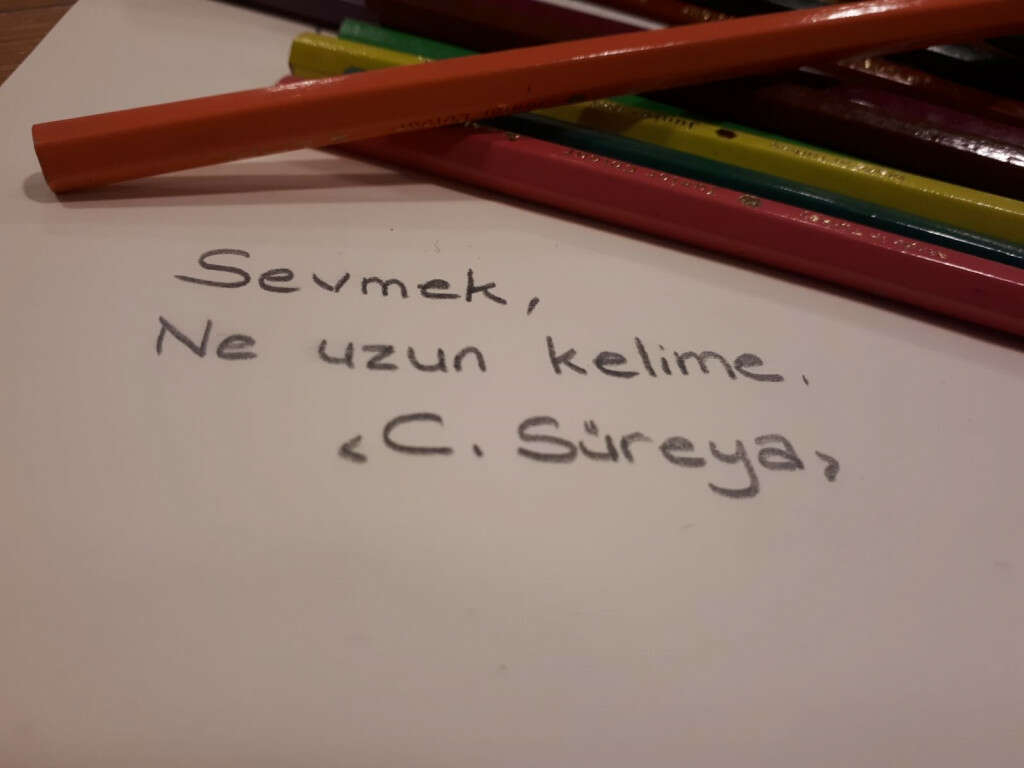 Sevmek,
Ne uzun kelime.
< C. Süreya >